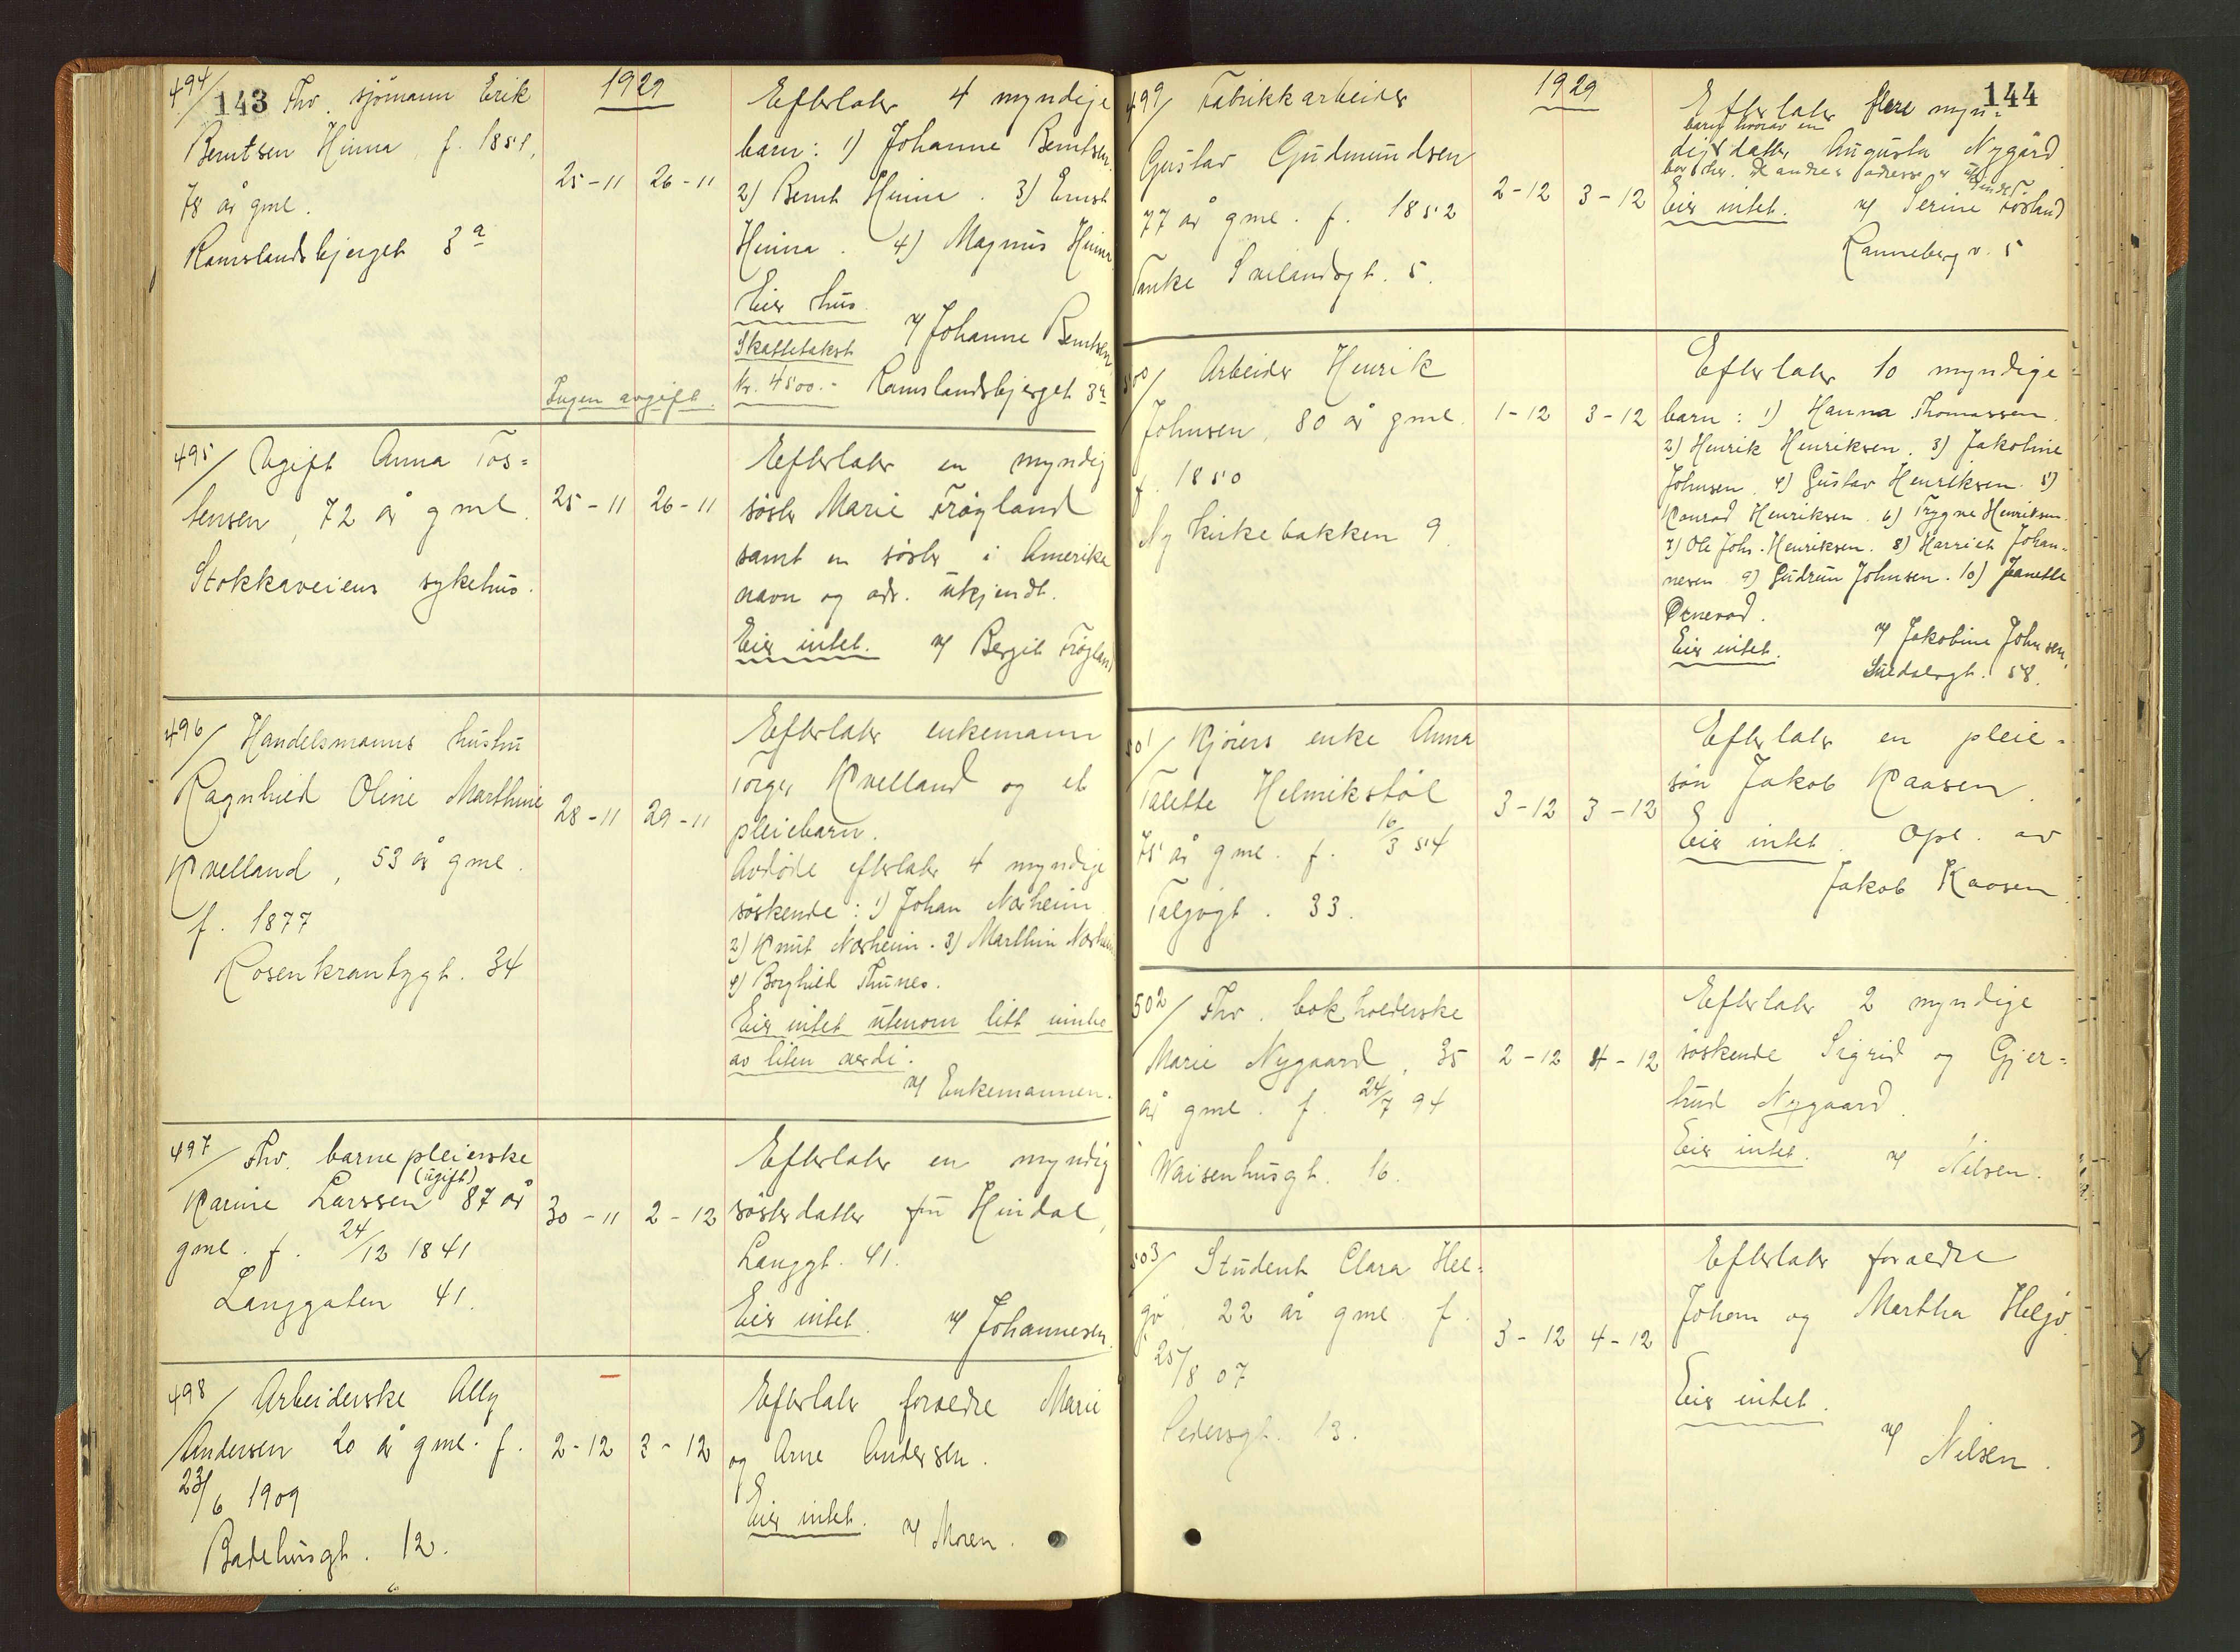 143
1929
494/ Fhv. sjømann Erik
Berntsen Hinna, f. 1851,
78 år gml.
Ramslandsbjerget 3a
25-11 26-11
Ingen avgift.
Efterlater 4 myndige
barn: 1) Johanne Berntsen
2) Bernt Hinna. 3) Ernst
Hinna. 4) Magnus Hinna.
Eier hus
Skattetakst
kr. 4500.-
v/ Johanne Berntsen,
Ramslandsbjerget 3a
495/ Ugift Anna Tos-
tensen, 72 år gml.
Stokkaveiens sykehus.
25-11 26-11
Efterlater en myndig
søster Marie Frøyland
samt en søster i Amerika
navn og adr. ukjendt.
Eier intet. v/ Bergit Frøyland
496/ Handelsmanns hustru
Ragnhild Oline Marthine
Kvelland, 53 år gml.
f. 1877
Rosenkrantzgt. 34
28-11 29-11
Efterlater enkemann
Torger Kvelland og et
pleiebarn.
Avdøde efterlater 4 myndige
søskende: 1) Johan Nærheim
2) Knut Nærheim. 3) Marthin Nærheim
4) Borghild Thunes.
Eier intet utenom litt innbo
av liten verdi.
v/ Enkemannen.
497/ Fhv. barnepleierske
(ugift)
Karine Larssen 87 år
gml. f. 24/12 1841
Langgaten 41.
30-11 2-12
Efterlater en myndig
søsterdatter fru Hindal,
Langgt. 41.
Eier intet. v/ Johannesen.
498/ Arbeiderske Ally
Andersen 20 år gml. f.
23/6 1909
Badehusgt. 12.
2-12 3-12
Efterlater foreldre Marie
og Arne Andersen.
Eier intet. v/ Moren.
144
1929
499/ Fabrikkarbeider
Gustav Gudmundsen
77 år gml. f. 1852
Tanke Svilandsgt. 5.
2-12 3-12
Efterlater flere myn-
barn hvorav en
dige datter Augusta Nygård
bor her. De andres adresse er ukjendt.
Eier intet. v/ Serine Fosland
Ranneberg v. 5
500/ Arbeider Henrik
Johnsen, 80 år gml.
f. 1850
Ny kirkebakken 9
1-12 3-12
Efterlater 10 myndige
barn: 1) Hanna Thomassen.
2) Henrik Henriksen. 3) Jakobine
Johnsen. 4) Gustav Henriksen. 5)
Konrad Henriksen. 6) Trygve Henriksen.
7) Ole Johs. Henriksen. 8) Harriet Johan-
nesen 9) Gudrun Johnsen. 10) Jeanette
Ørnevad.
Eier intet. v/ Jakobine Johnsen,
Suldalsgt. 58.
501/ Kjørers enke Anna
Talette Helmikstøl
75 år gml. f. 16/3 54
Taljegt. 33.
3-12 3-12
Efterlater en pleie-
søn Jakob Kaasen.
Eier intet. Opl. av
Jakob Kaasen.
502/ Fhv. bokholderske
Marie Nygaard, 35
år gml. f. 24/7 94
Waisenhusgt. 16.
2-12 4-12
Efterlater 2 myndige
søskende Sigrid og Gjer-
trud Nygaard.
Eier intet. v/ Nilsen.
503/ Student Clara Hel-
gø, 22 år gml. f.
25/8 07
Pedersgt. 13.
3-12 4-12
Efterlater foreldre
Johan og Martha Helgø.
Eier intet.
v/ Nilsen.